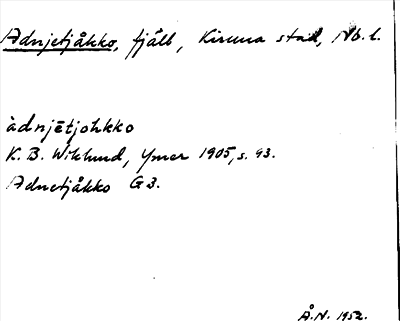 Adnjetjåkko, fjäll, Kiruna stad, Nb. l.
àdnjētjohkko
K. B. Wiklund, Ymer 1905, s. 93.
Adnetjåkko G3.
Å.N. 1952.